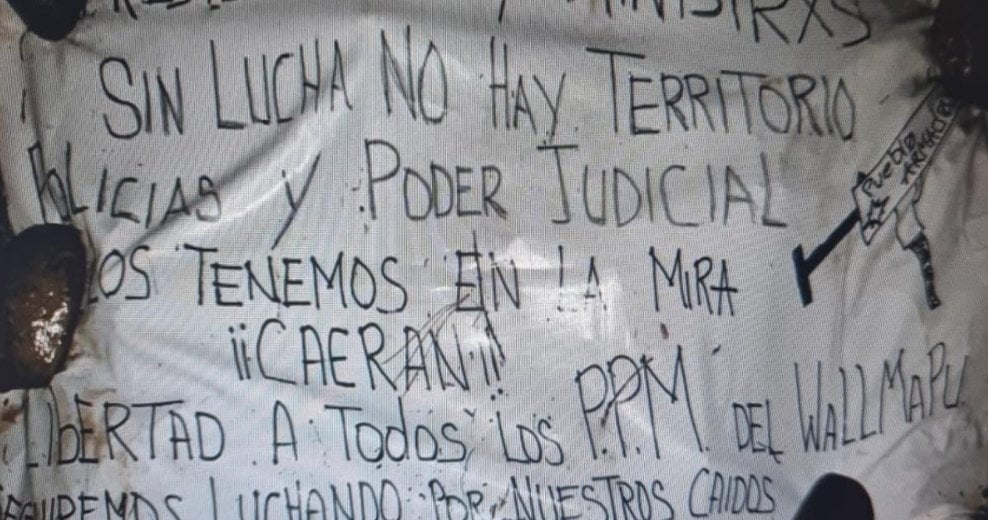 SIN LUCHA NO HAY TERRITORIO
POLICIAS Y PODER JUDICIAL
LOS TENEMOS EN LA MIRA
¡¡CAERAN!!
LIbERTAD A TOdOS LOS P.P.M. DEL WALLMAPU
LUCHANDO POR NUESTROS CAIDOS
PUEblO